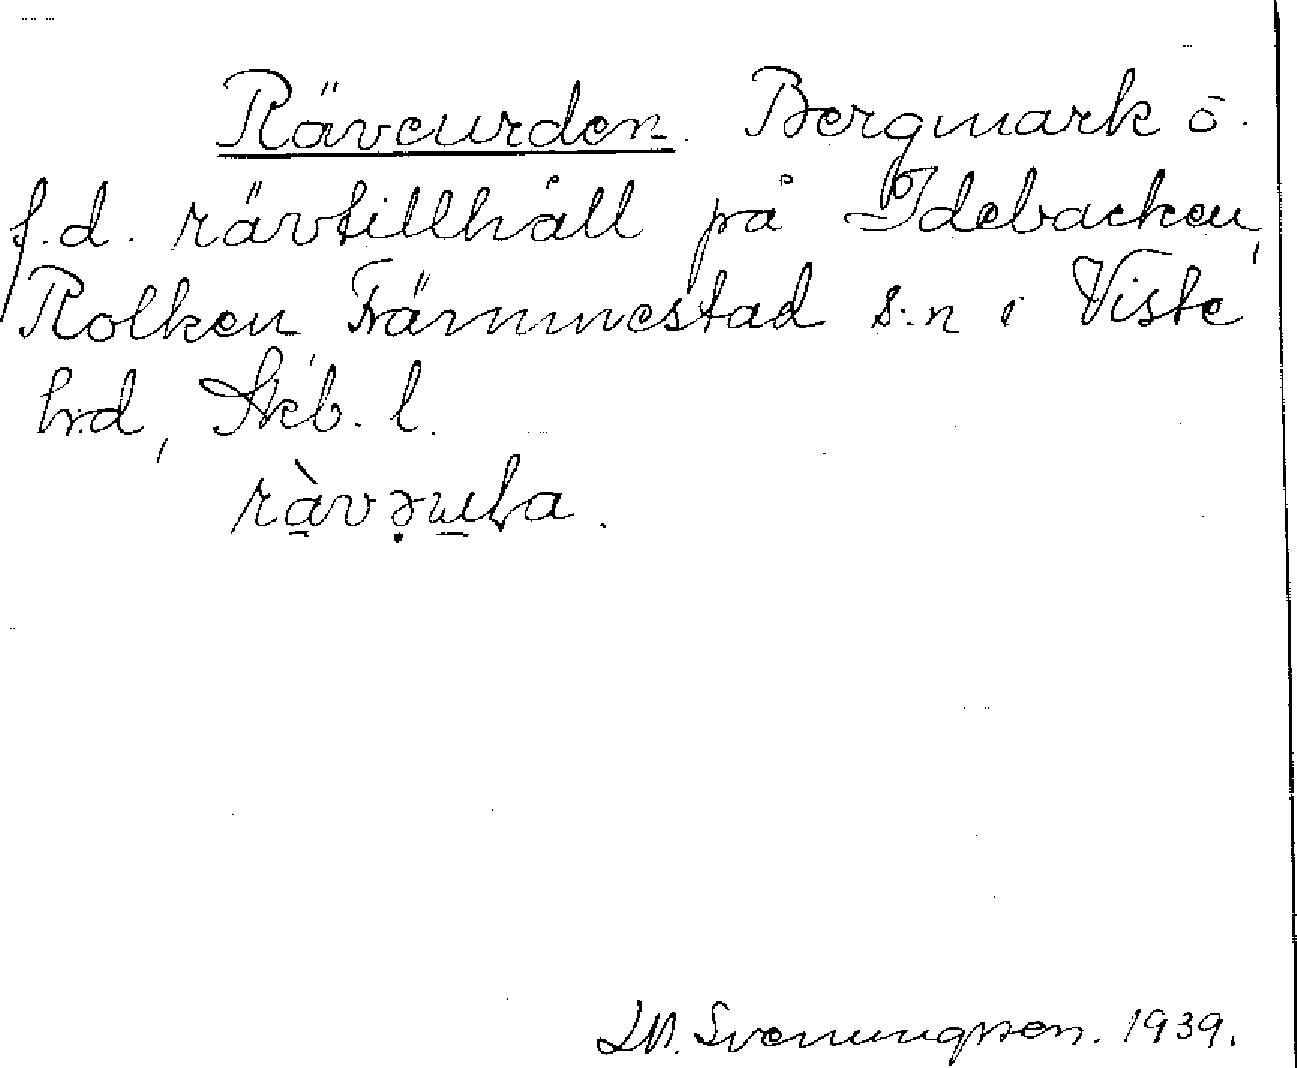 Räveurden. Bergmark o.
f.d. rävtillhåll på Idebacken,
Rolken Främmestad s:n i Viste
hrd, Skb. l.
L.M. Svenungsson. 1939.